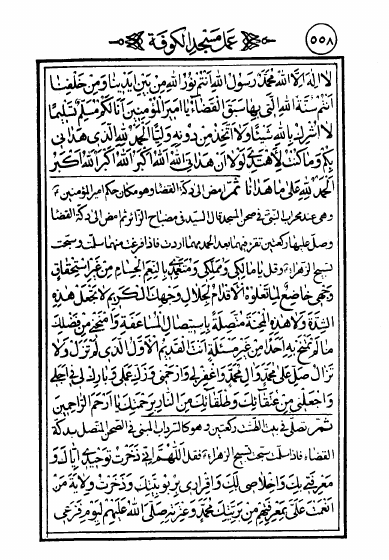 ٥٥٨
عمل مسجد الكوفة
لا اله الا الله محمد رسول الله انتم نور الله من بين ايدينا ومن خلفنا
انتم سنة الله التي بها سبق القضاء يا امير المؤمنين انا لكم مسلم تسليما
لا اشرك بالله شيئا ولا اتخذ من دونه وليا الحمد لله الذي هداني
بكم وما كنت لاهتدي لولا ان هداني الله الله اكبر الله اكبر الله اكبر
الحمد لله على ما هدانا ثم امض الى دكة القضا وهو مكان حكم امير المؤمنين
وهي عند محراب النبي في صحن المسجد قال السيد في مصباح الزائر ثم امض الى دكة القضا
وصل عليها ركعتين تقرء فيهما بعد الحمد مهما اردت فاذا فرغت منهما سلمت وسبحت
تسبيح الزهراء وقل يا مالكي ومملكي ومتغمدي بالنعم الجسام من غير استحقاق
وجهي خاضع لما تعلوه الاقدام لجلال وجهك الكريم لا تجعل هذه
الشدة ولا هذه المحنة متصلة باستيصال الشاقة وامنحني من فضلك
ما لم تمنح به احدا من غير مسئلة انت القديم الاول الذي لم تزل ولا
تزال صل على محمد وال محمد واغفر لي وارحمني وزك عملي وبارك لي في اجلي
واجعلني من عتقائك وطلقائك من النار برحمتك يا ارحم الراحمين
ثم تصلي في بيت الطشت ركعتين وهو كالسرداب المبني في الصحن المتصل بدكة
القضاء فاذا سلمت سبح تسبيح الزهراء فقل اللهم اني ذخرت توحيدي اياك و
معرفتي بك واخلاصي لك واقراري بربوبيتك وذخرت ولاية من
انعمت علي بمعرفتهم من بريتك محمد وعترته صلى الله عليهم ليوم فزعي